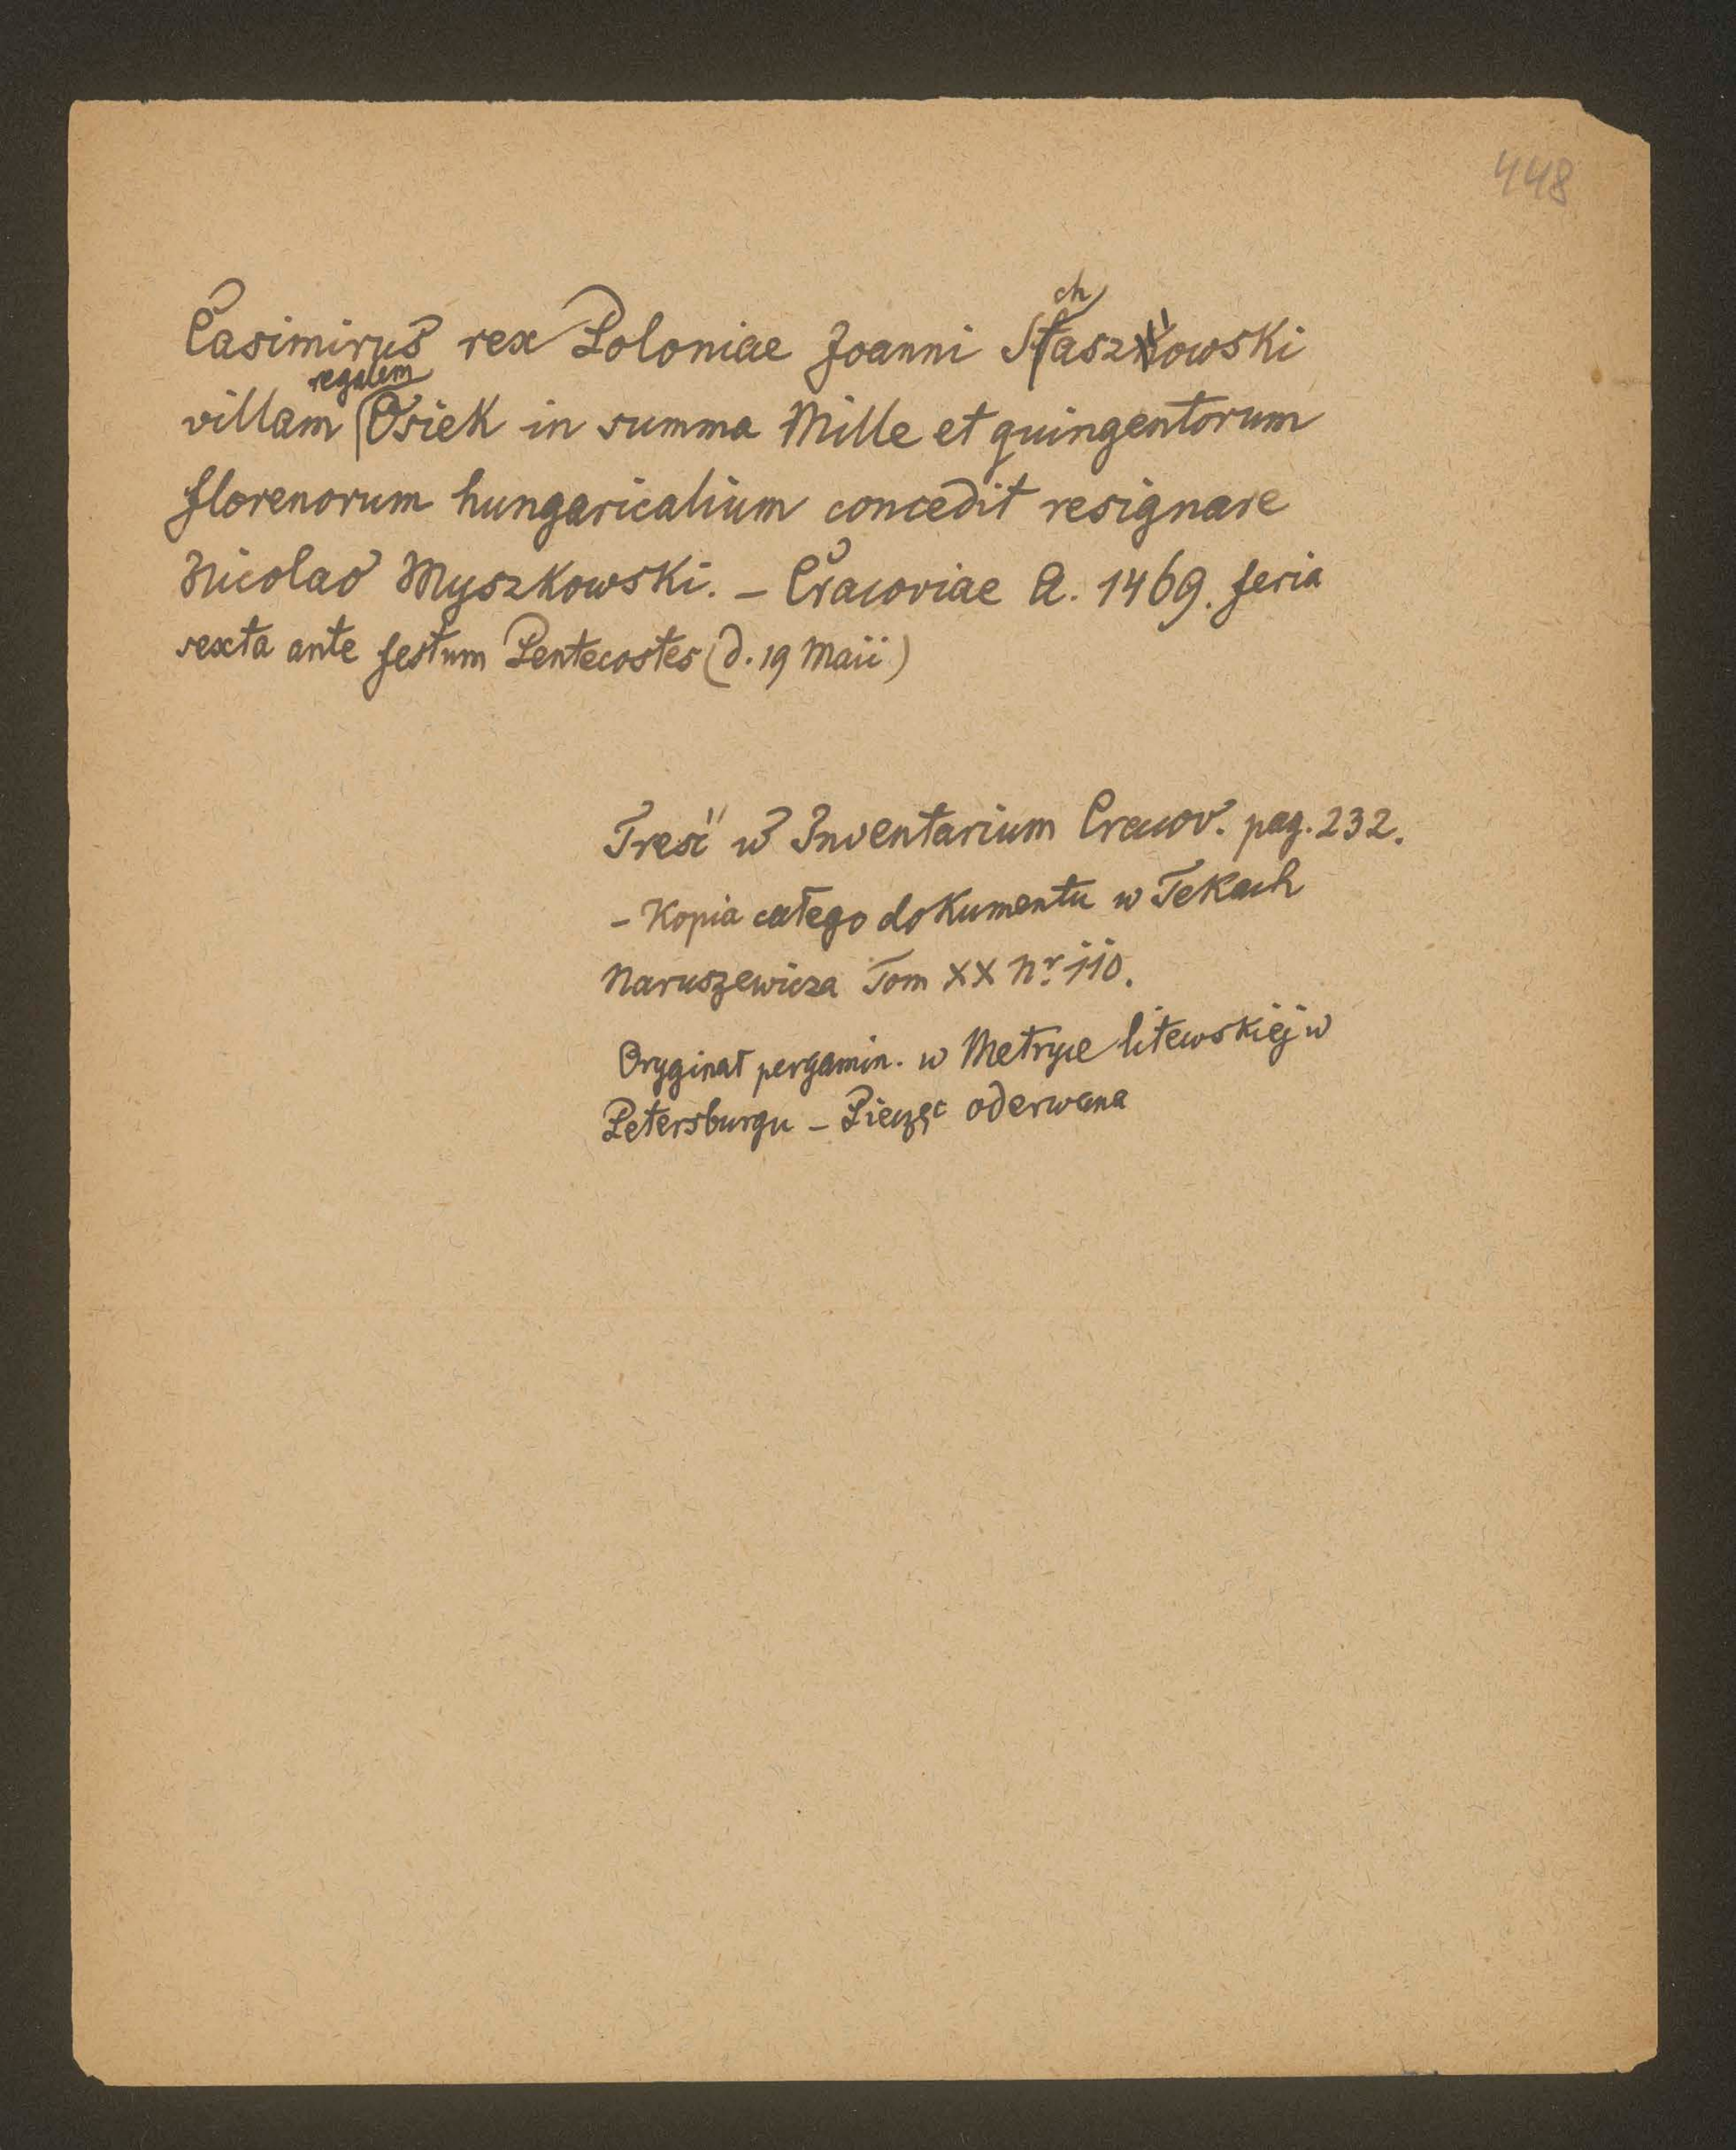 448
Casimirus rex Poloniae Joanni Schaszowski
villam regalem Osiek in summa Mille et quingentorum
florenorum hungaricalium concedit resignare
Nicolao Myszkowski. – Cracoviae A. 1469. feria
sexta ante festum Pentecostes (d. 19 Maii)
Treść w Inventarium Cracov. pag. 232.
– Kopia całego dokumentu w Tekach
Naruszewicza Tom XX Nr. 110.
Oryginał pergamin. w Metryce litewskiéj w
Petersburgu – Pieczęć oderwana